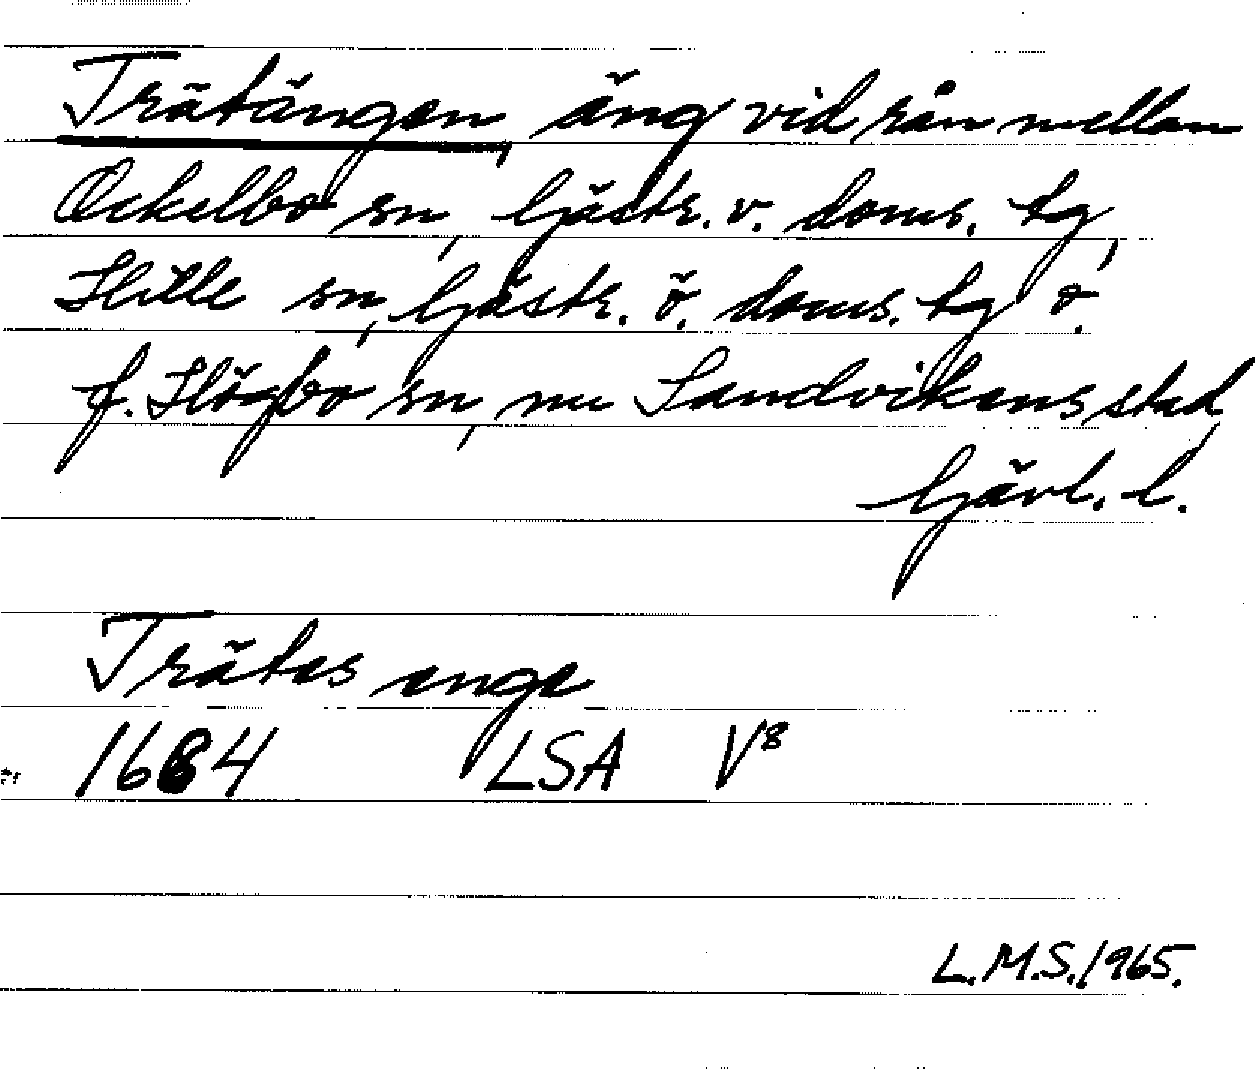 Trätängen, äng vid rån mellan
Ockelbo sn, Gästr. v. doms. tg,
Hille sn, Gästr. ö. doms. tg o.
f. Högbo sn, nu Sandvikens stad,
Gävl. l.
Trätes enge
1684 LSA V8
L.M.S. 1965.